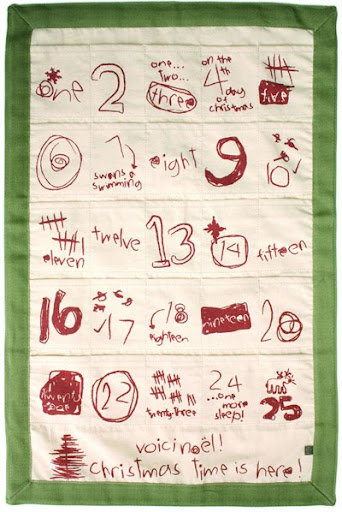 one
2
one...
two...
three
on the
4th
day
of
christmas
day
6
7
swans a
swimming
eight
9
10
eleven
twelve
13
14
fifteen
16
17
18
eighteen
nineteen
20
twenty
one
22
twenty-three
24
...one
more
sleep!
25
voici noël!
christmas time is here!